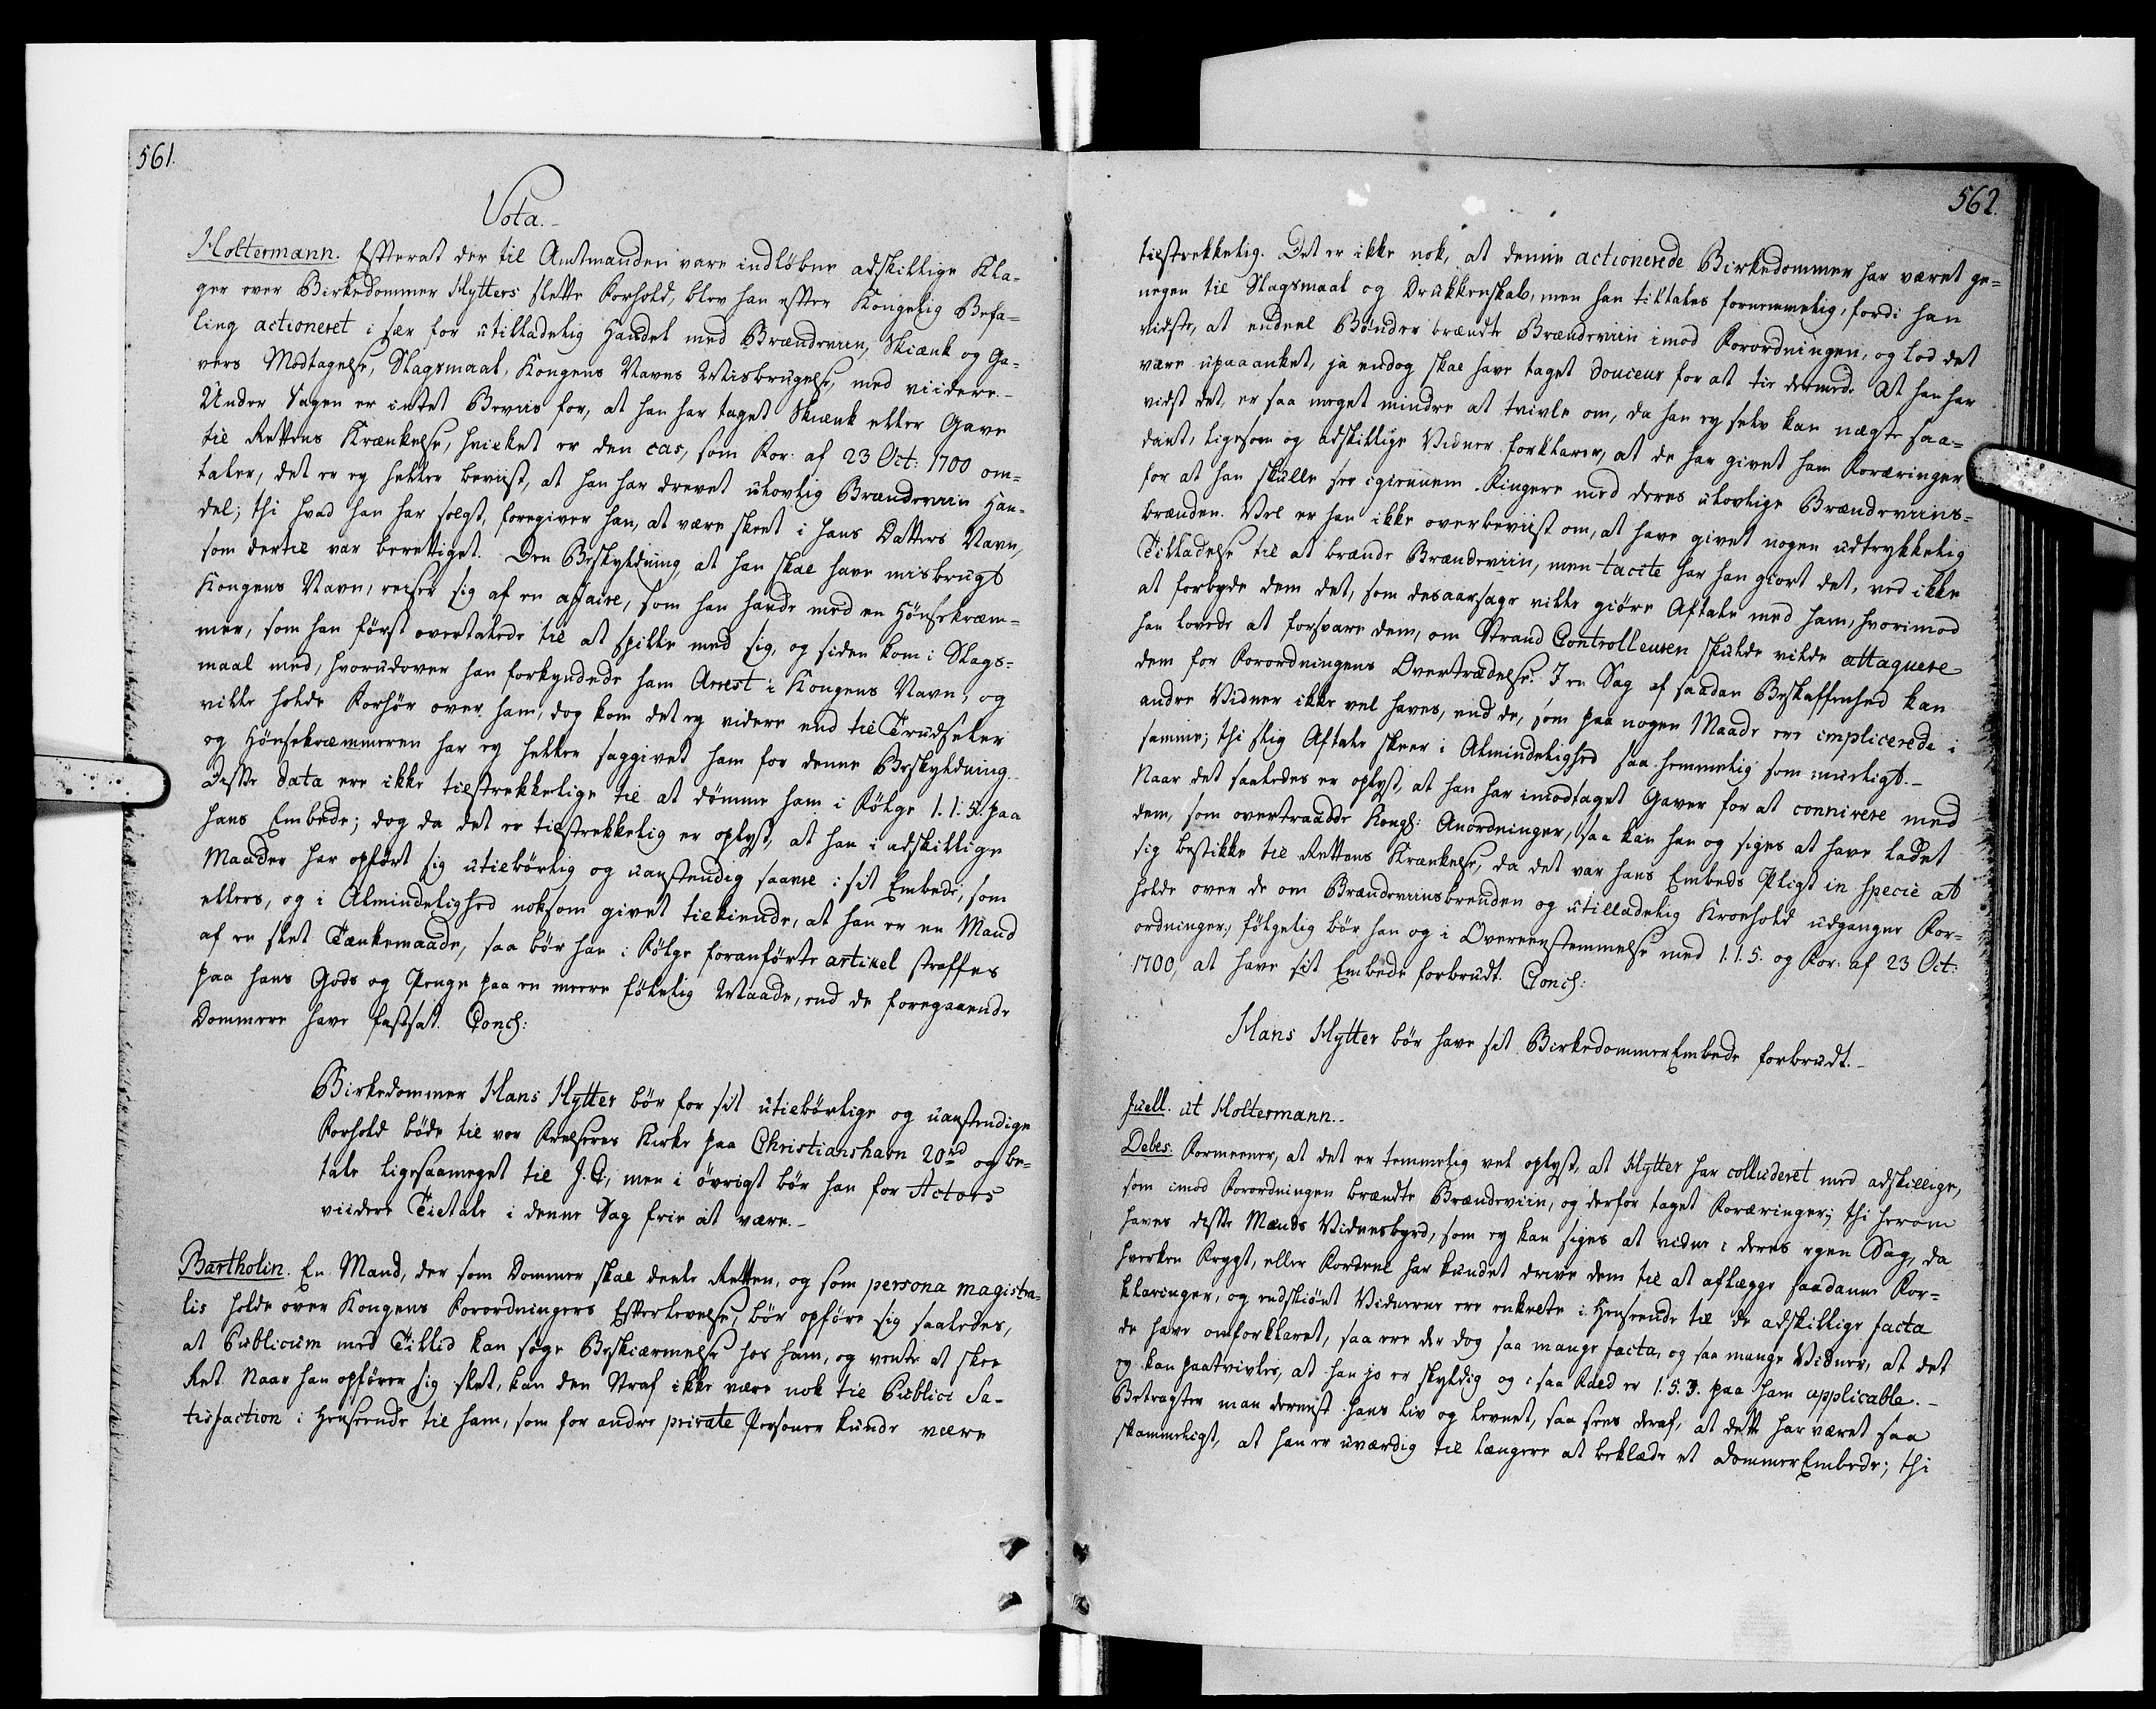 561.
Vota.-
Holtermann. Efterat der til Amtmanden vare indløbne adskillige Kla-
ger over Birkedommer Hytters slette Forhold, blev han efter Kongelig Befa-
ling actioneret i sær for utilladelig Handel med Brændeviin, Skiænk og Ga-
vers Modtagelse, Slagsmaal, Kongens Navns Misbrugelse, med viidere.-
Under Sagen er intet Beviis for, at han har taget Skiænk eller Gave
til Rettens Krænkelse, hvilket er den cas, som For: af 23 Oct: 1700 om-
taler, det er ey heller beviist, at han har drevet ulovlig Brændeviin Han-
del; thi hvad han har solgt, foregiver han, at være skeet i hans Datters Navn,
som dertil var berettiget. Den Beskyldning, at han skal have misbrugt
Kongens Navn, reiser sig af en affaire, som han havde med en Hønsekræm-
mer, som han først overtalede til at spille med sig, og siden kom i Slags-
maal med, hvorudover han forkyndede ham Arrest i Kongens Navn, og
ville holde Forhør over ham, dog kom det ey videre end til Trudseler
og Hønsekræmmeren har ey heller saggivet ham for denne Beskyldning.
Disse data ere ikke tilstrekkelige til at dømme ham i Følge 1.1.5. paa
hans Embede; dog da det er tilstrekkelig er oplyst, at han i adskillige
Maader har opført sig utilbørlig og uanstændig saavel i sit Embede, som
ellers, og i Almindelighed noksom givet tilkiende, at han er en Mand
af en slet Tænkemaade, saa bør han i Følge foranførte artikel straffes
paa hans Gods og Penge paa en meere følelig Maade, end de foregaaende
Dommere have fastsat. Concl:
Birkedommer Hans Hytter bør for sit utilbørlige og uanstendige
Forhold bøde til vor Frelseres Kirke paa Christianshavn 20 rd og be-
tale ligesaameget til J. C., men i øvrigt bør han for Actors
viidere Tiltale i denne Sag frie at være.-
Bartholin. En Mand, der som Dommer skal deele Retten, og som persona magistra-
lis holde over Kongens Forordningers Efterlevelse, bør opføre sig saaledes,
at Publicum med Tillid kan søge Beskiærmelse hos ham, og vente at skee
Ret. Naar han opfører sig slet, kan den Straf ikke være nok til Publici Sa-
tisfaction i Henseende til ham, som for andre private Personer kunde være
562.
tilstrekkelig. Det er ikke nok, at denne actionerede Birkedommer har været ge-
neyen til Slagsmaal og Drukkenskab, men han tiltales fornemmelig, fordi han
vidste, at endeel Bønder brændte Brændeviin imod Forordningen, og lod det
være upaaanket, ja endog skal have taget douceur for at tie dermed. At han har
vidst det, er saa meget mindre at tvivle om, da han ey selv kan nægte saa-
dant, ligesom og adskillige Vidner forklarer, at de har givet ham Foræringer
for at han skulle see igiennem Fingere med deres ulovlige Brændeviins-
brænden. Vel er han ikke overbeviist om, at have givet nogen udtrykkelig
Tilladelse til at brænde Brændeviin, men tacite har han giort det, ved ikke
at forbyde dem det, som desaarsage ville giøre Aftale med ham, hvorimod
han lovede at forsvare dem, om Strand Controlleuren skulde vilde attaquere
dem for Forordningens Overtrædelse. I en Sag af saadan Beskaffenhed kan
andre Vidner ikke vel haves, end de, som paa nogen Maade ere implicerede i
samme; thi slig Aftale skeer i Almindelighed saa hemmelig som mueligt.-
Naar det saaledes er oplyst, at han har imodtaget Gaver for at connivere med
dem, som overtraadde Kongl: Anordninger, saa kan han og siges at have ladet
sig bestikke til Rettens Krænkelse, da det var hans Embeds Pligt in specie at
holde over de om Brændeviinsbrenden og utilladelig Kroehold udgangne For-
ordninger, følgelig bør han og i Overeenstemmelse med 1.1.5. og For: af 23 Oct:
1700, at have sit Embede forbrudt. Concl:
Hans Hytter bør have sit BirkedommerEmbede forbrudt.-
Juell. ut Holtermann.-
Debes: Formeener, at det er temmelig vel oplyst, at Hytter har colluderet med adskillige,
som imod Forordningen brændte Brændeviin, og derfor taget Foræringer; thi herom
haves disse Mænds Vidnesbyrd, som ey kan siges at vidne i deres egen Sag, da
hverken Frygt, eller Fordeel har kundet drive dem til at aflægge saadanne For-
klaringer, og endskiønt Vidnerne ere enkelte i Henseende til de adskillige facta
de have omforklaret, saa ere der dog saa mange facta, og saa mange Vidner, at det
ey kan paatvivles, at han jo er skyldig og i saa Fald er 1.5.3. paa ham applicable.-
Betragter man dernæst hans Liv og Levnet, saa sees deraf, at dette har været saa
skammeligt, at han er uværdig til længere at beklæde et DommerEmbede; thi